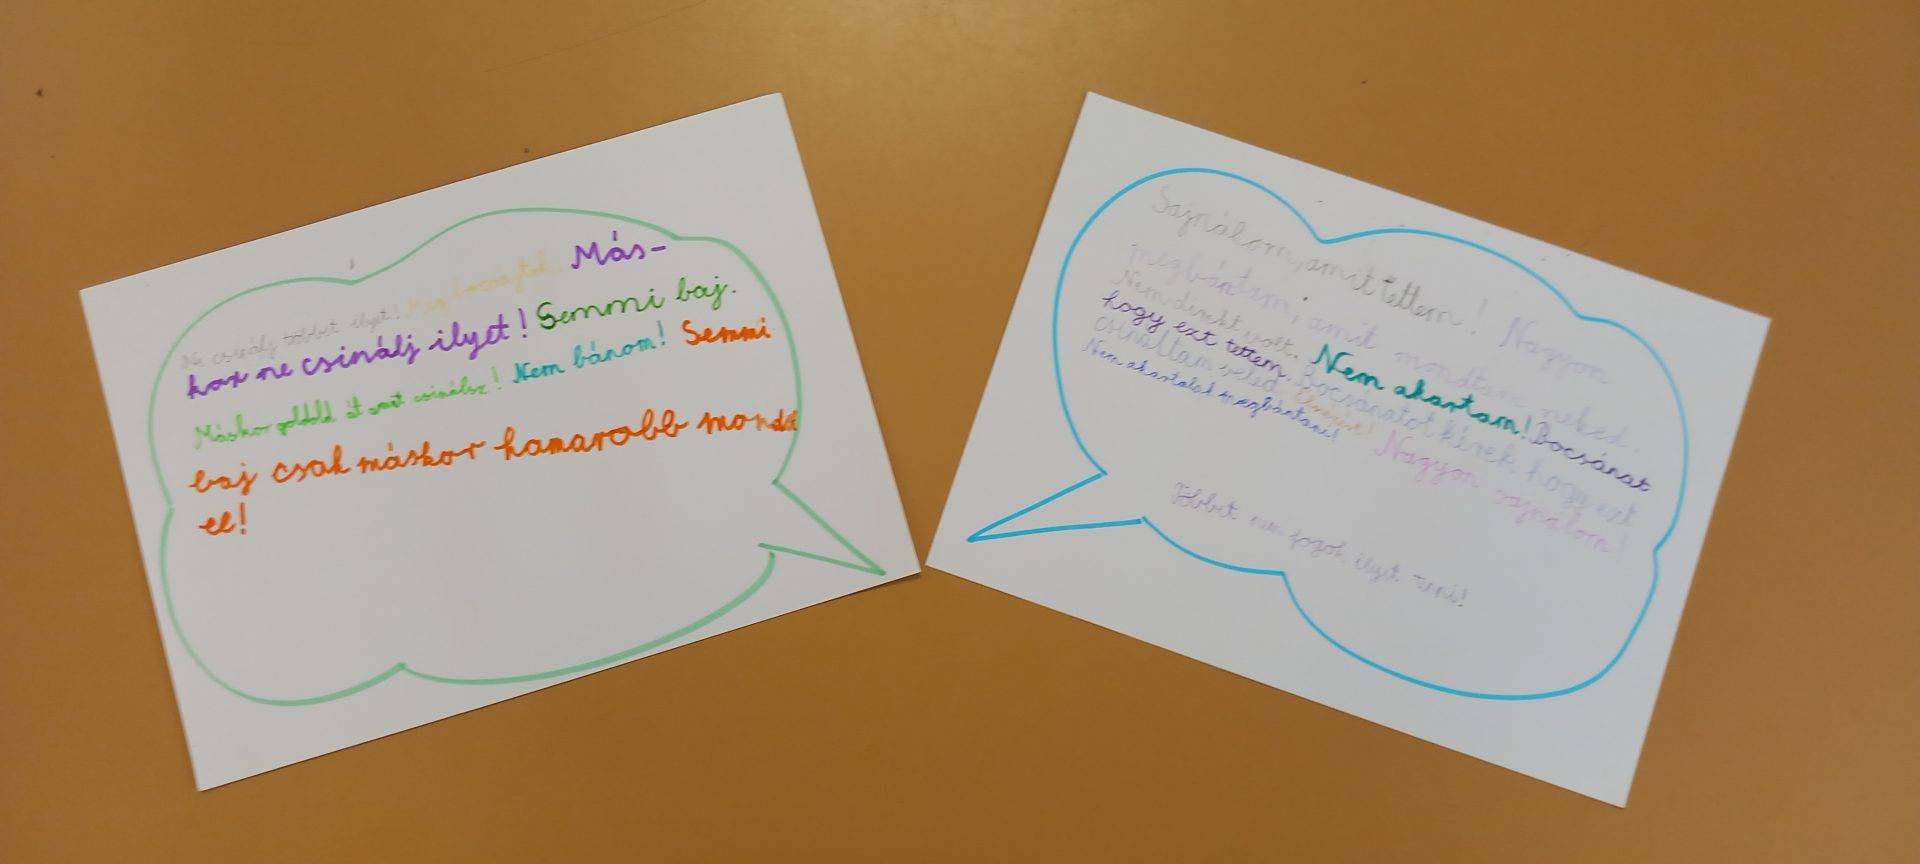 Ne csinálj többet ilyet! Megbocsájtok. Más-
kor ne csinálj ilyet! Semmi baj.
Máskor gondold át amit csinálsz! Nem bánom! Semmi
baj csak máskor hamarabb mondd
el!
Sajnálom, amit tettem! Nagyon
megbántam, amit mondtam neked.
Nem direkt volt.. Nem akartam! Bocsánat
hogy ezt tettem. Bocsánatot kérek, hogy ezt
csináltam veled. Elnézést! Nagyon sajnálom!
Nem akartalak megbántani!
Többet nem fogok ilyet tenni!